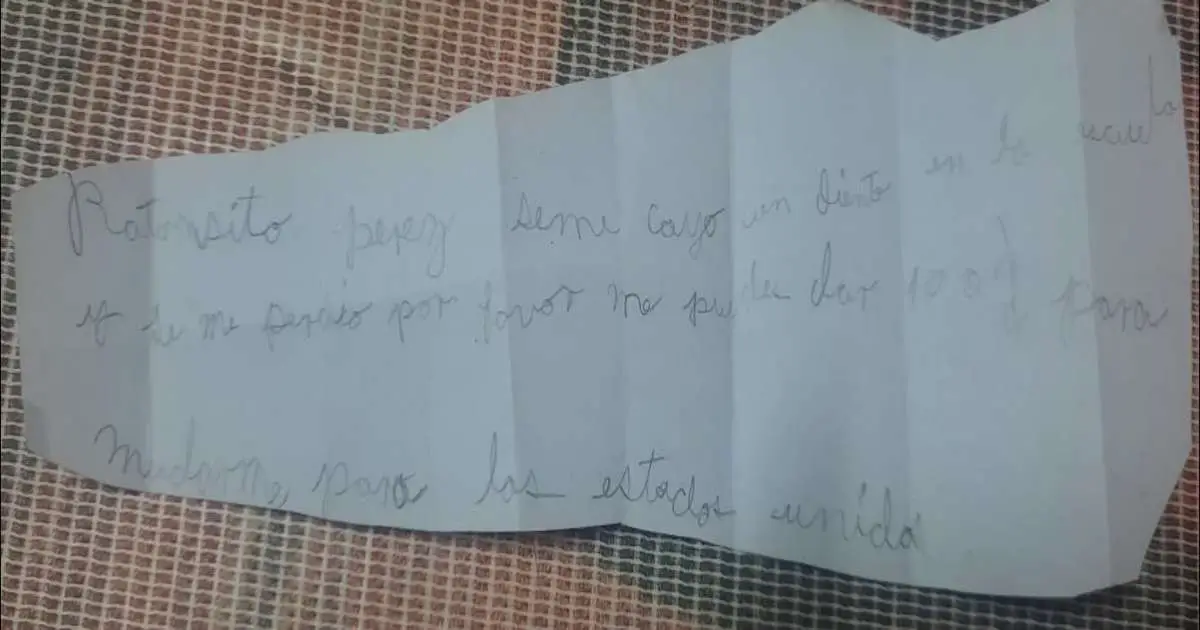 Ratonsito perez seme cayo un diento en la escuela
y se me perdio por favor me puedes dar 100$ para
mudarme para los estados unida